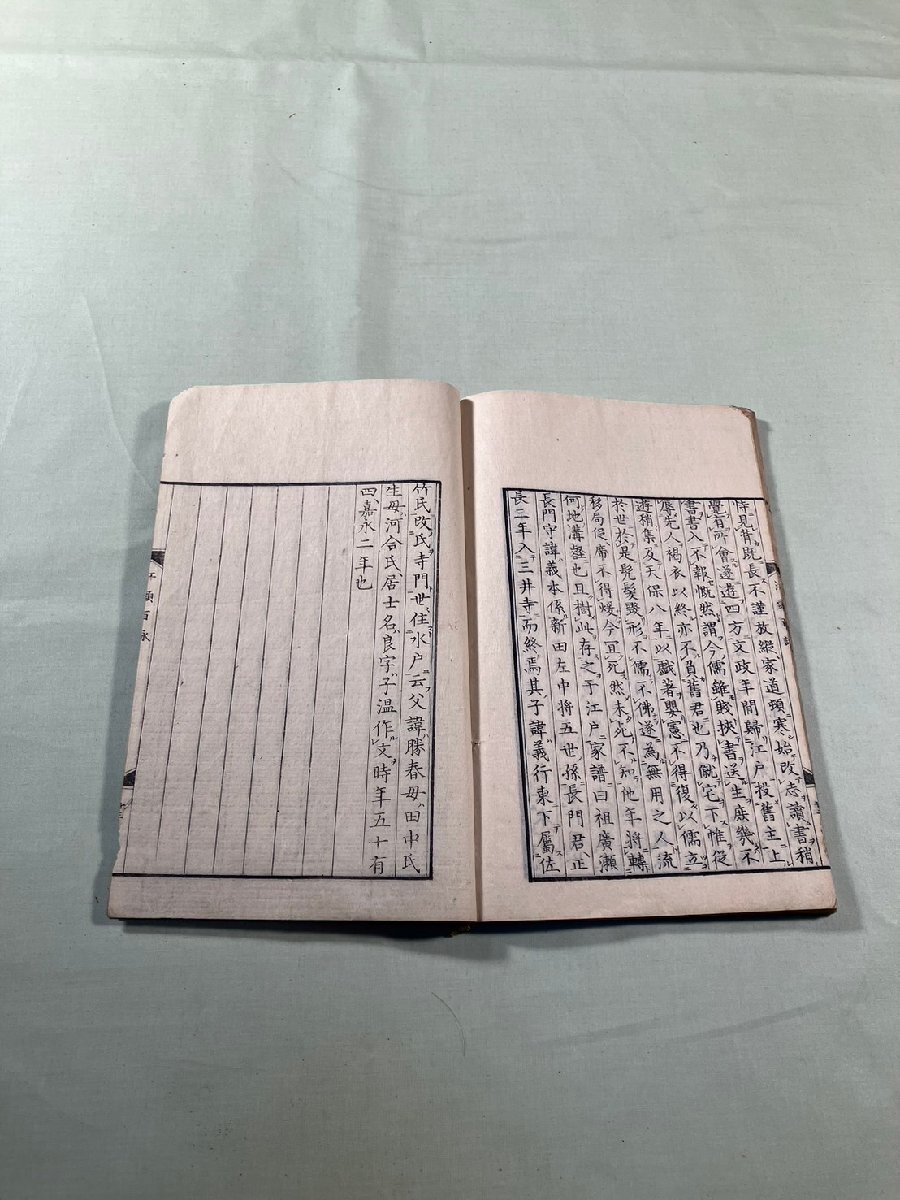 幸見背、既長不謹放縱、家道頓寒、始改志讀書、稍
覺有所會、遂遊四方、文政年間歸江戸、投舊主上
書、書入不報、慨然謂、今儒雖賤、挾書送生、庶幾不
辱先人、褐衣以終、亦不負舊君也、乃僦宅下帷、從
遊稍集、及天保八年、以戯著嬰憲、不得復以儒立
於世、於是髠髮變形、不儒不佛、遂為無用之人、流
移局促、席不得煖、今且死、然未死、不知他年將轉
何地溝壑也、且樹此存之于江戸、家譜曰、祖廣瀬
長門守諱義本、係新田左中將五世孫、長門君正
長三年入三井寺而終焉、其子諱義行、東下屬佐
竹氏、改氏寺門、世住水戸云、父諱勝春、母田中氏、
生母河合氏、居士名良、字子温、作文時年五十有
四、嘉永二年也
江頭百詠